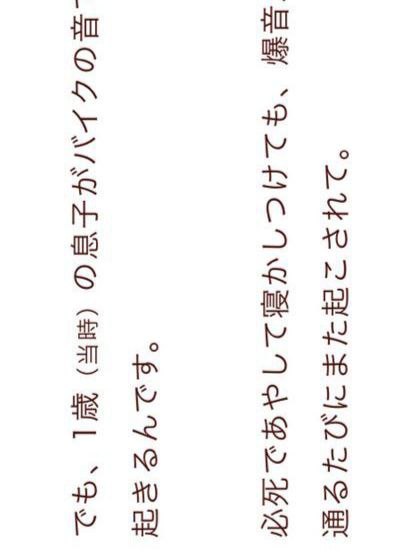 でも、1歳（当時）の息子がバイクの音
起きるんです。
必死であやして寝かしつけても、爆音
通るたびにまた起こされて。